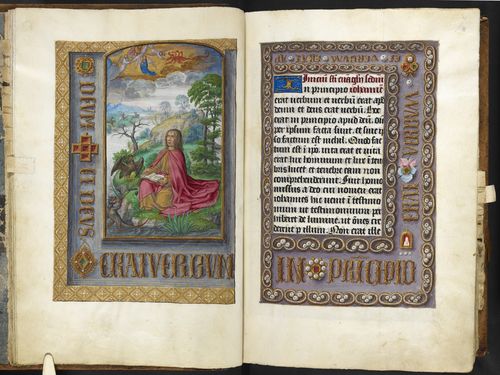 DEUM ET DEUS
ERAT VERBUM
Iniciu sci euagly sedm
n principio iohannem
erat verbum et verbu erat apd
deum et deus erat verbu. 
erat in principio apud deu. oi
per ipsum facta sunt. et sine ip
so factum est nichil. Quod fac
tum est i ipo. vita erat et vita
erat lux hominum et lux i tene
bris lucet et tenebre eam non
comprehenderunt. Fuit homo
missus a deo cui nomen erat
iohannes hic venit i testimo
nium ut testimonium per
hiberet de lumine. ut oes cre
derent p illum. Non erat ille
IN PRINCIPIO